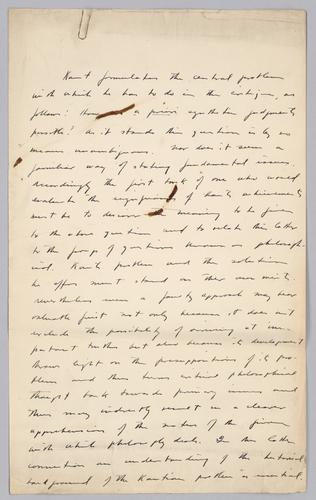 Kant formulates the central problem
with which he has to do in the critique, as
follows: How are a priori synthetic judgments
possible? As it stands this question is by no
means unambiguous. Nor does it seem a
peculiar way of stating fundamental issues
Accordingly the first task of one who would
evaluate the significance of Kant's achievements
must be to discover the meaning to be given
to the above question and to relate this latter
to the group of questions known as philosoph-
ical. Kant's problem and the solution
he offers must stand on their own merits
nevertheless even a faulty approach may bear
valuable fruit not only because it does not
exclude the possibility of arriving at im-
portant truths but also because its development
throws light on the presuppositions of its pro-
blem and thus turns critical philosophical
thought back towards primary issues and
thus may indirectly result in a clearer
apprehension of the nature of the given
with which philosophy deals. In this latter
connection an understanding of the historical
background of the Kantian problem is essential.